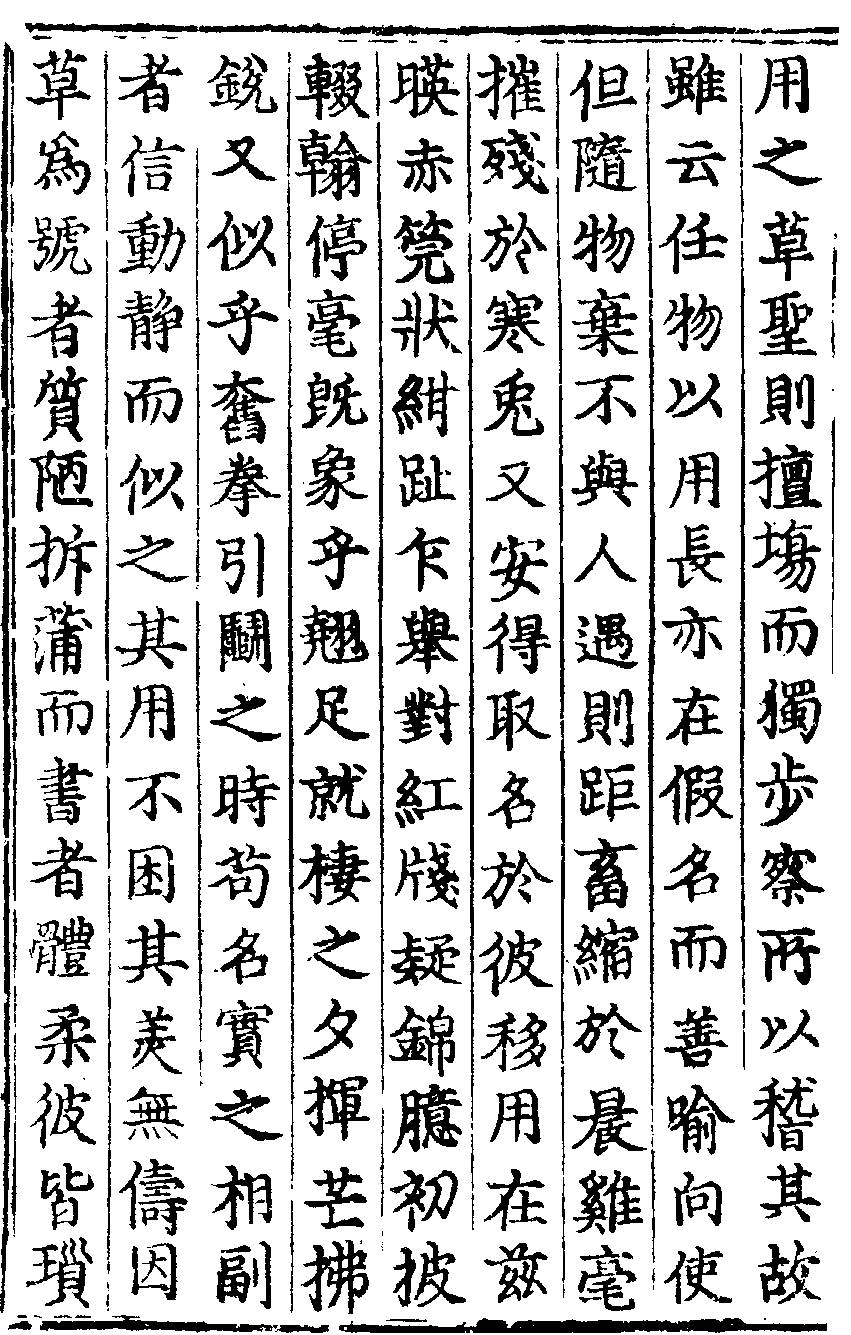 用之草聖則擅塲而獨步察所以稽其故
雖云任物以用長亦在假名而善喻向使
但隨物棄不與人遇則距畜縮於晨雞毫
摧殘於寒兎又安得取名於彼移用在兹
暎赤筦狀紺趾乍舉對紅牋疑錦臆初披
輟翰停毫旣象乎翹足就棲之夕揮芒拂
銳又似乎奮拳引鬬之時苟名實之相副
者信動静而似之其用不困其美無儔因
草爲號者質陋拆蒲而書者體柔彼皆瑣